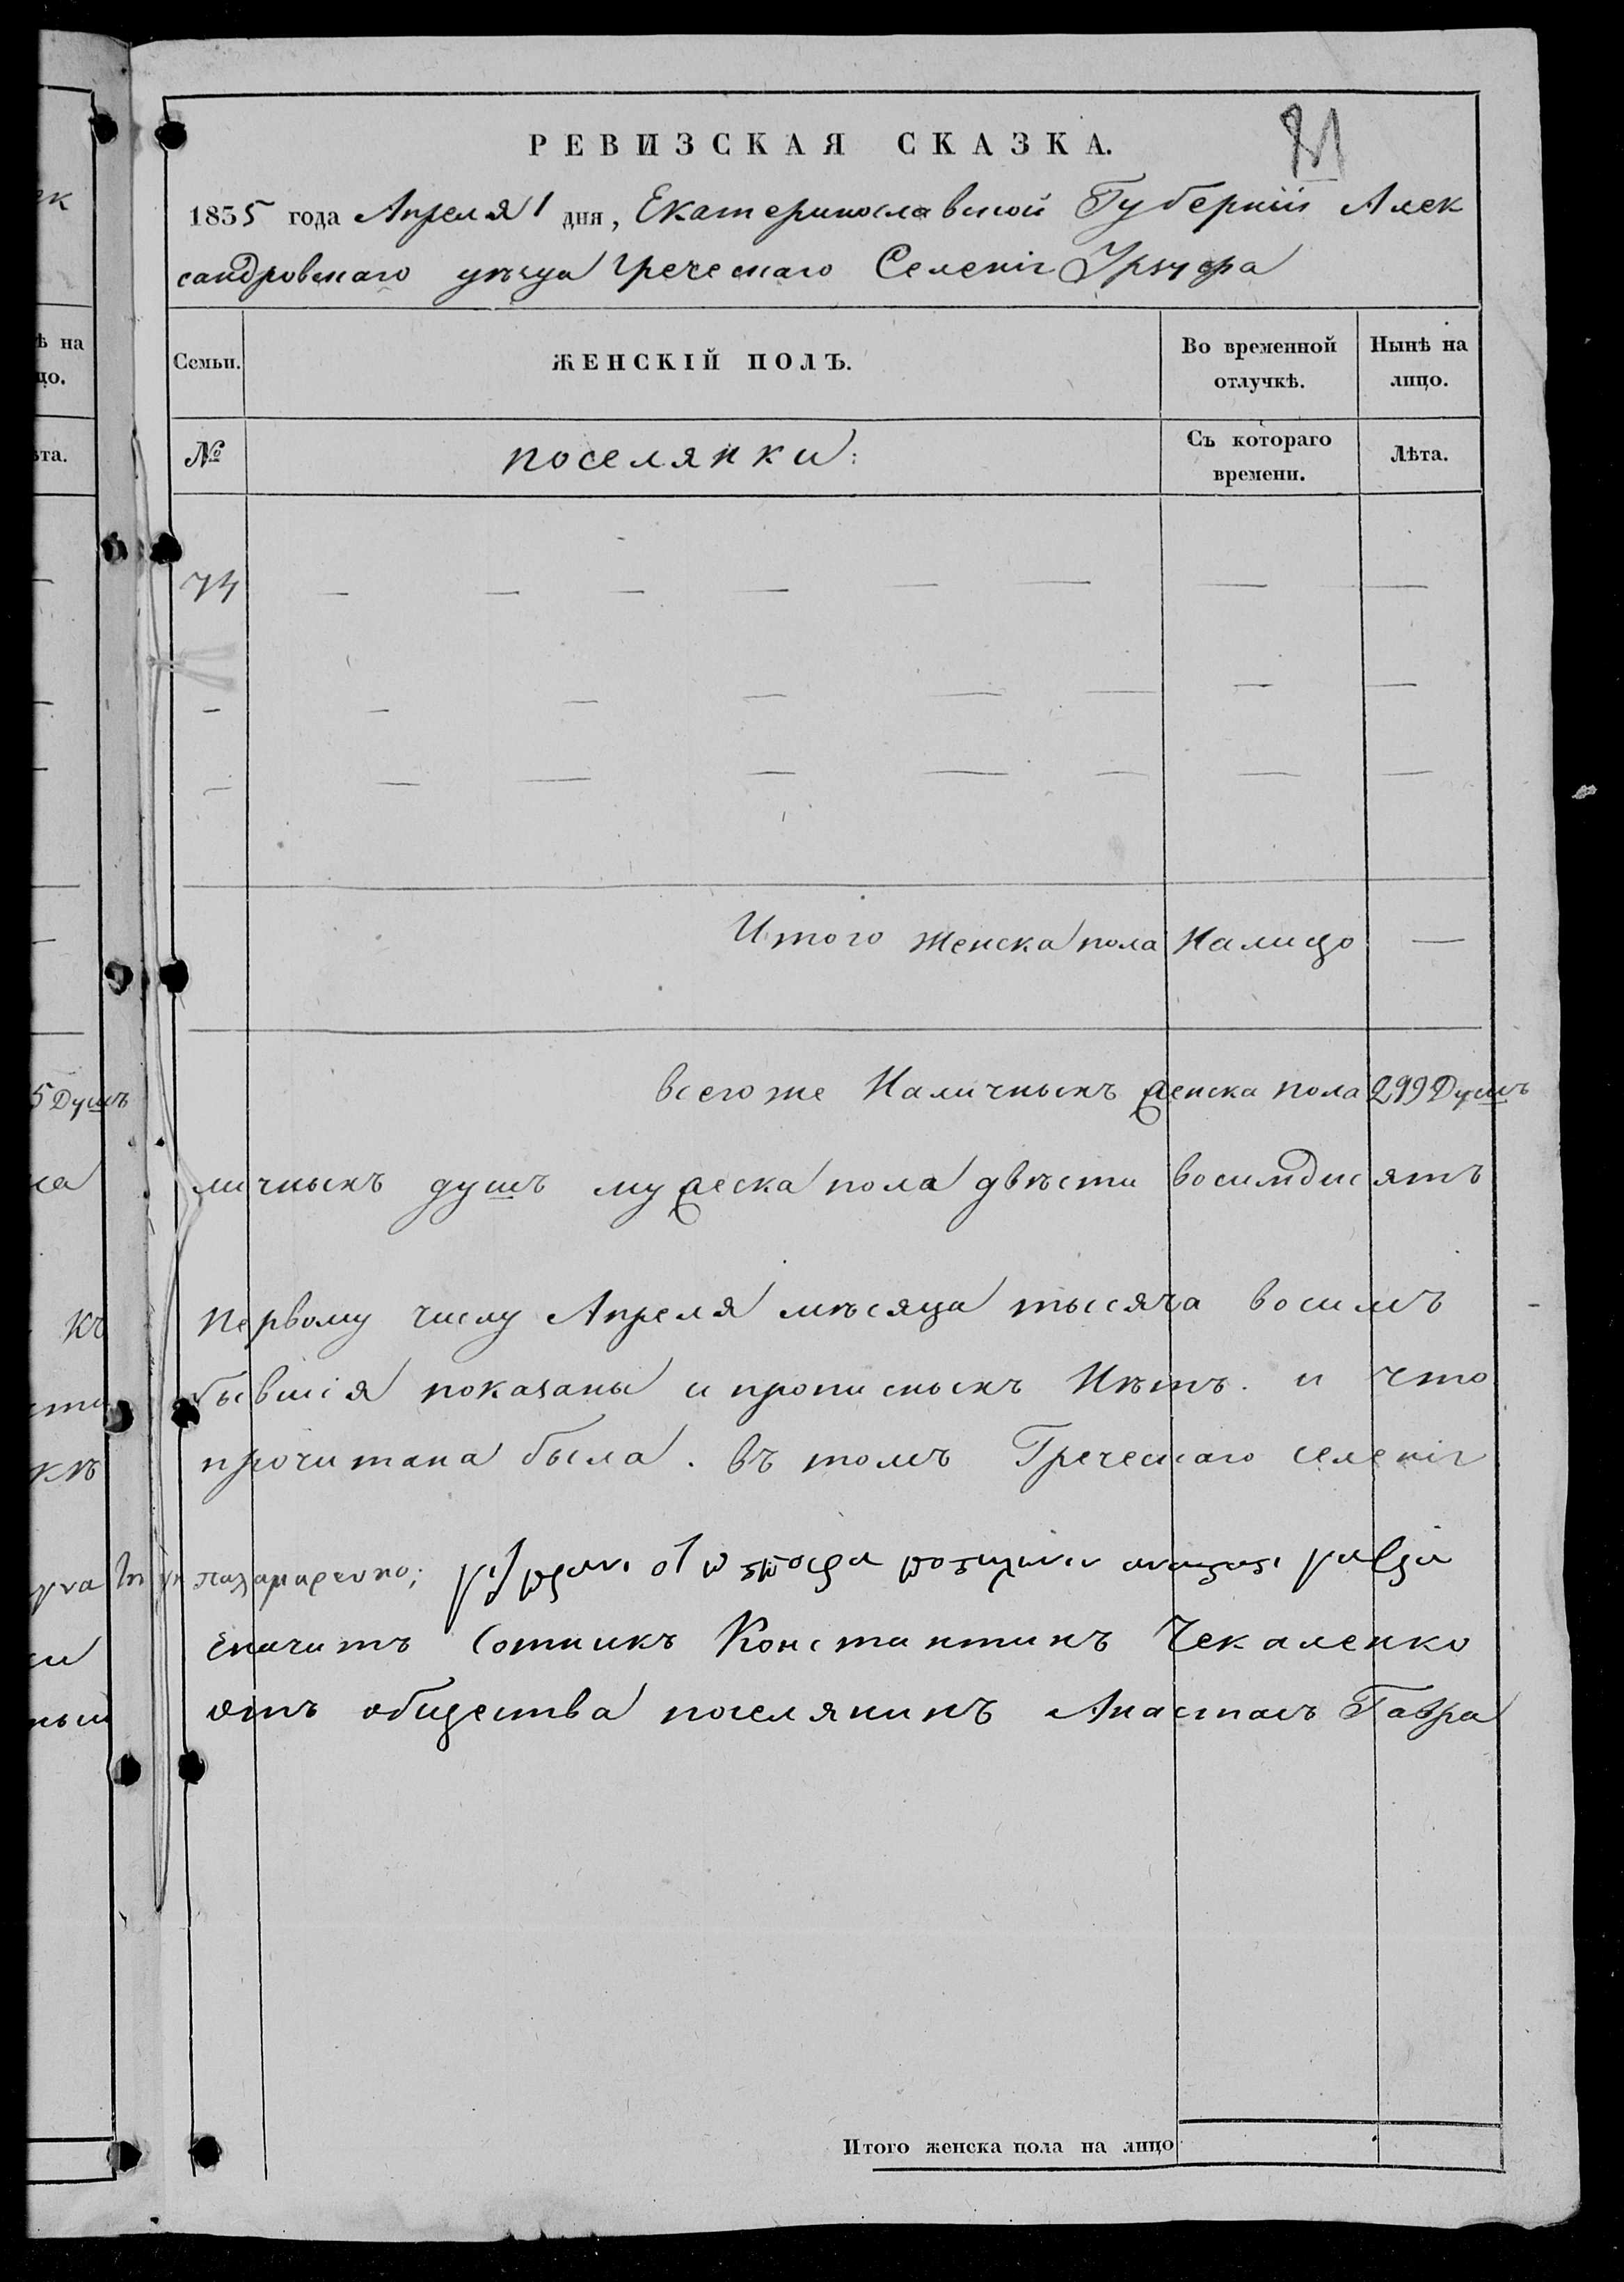 РЕВИЗСКАЯ СКАЗКА.
1835 года Апреля 1 дня, Екатеринославской Губерніи Алек
сандровскаго уѣзда Греческаго Селенія Урзуфа
Семьи.
ЖЕНСКІЙ ПОЛЪ.
Во временной отлучкѣ.
Нынѣ на лицо.
№
поселянки:
Съ котораго времени.
Лѣта.
74 — — — — — — — —
— — — — — — — —
— — — — — — — —
Итого женска пола Налицо —
всего же Наличныхъ женска пола 299 Душъ
личныхъ душъ мужеска пола двѣсти восимдисятъ
Первому числу Апреля мѣсяца тысяча восимъ
бывшія показаны и прописныхъ Нѣтъ. и что
прочитана была. въ томъ Греческаго селенія
значитъ Сотникъ Константинъ Чекаленко
отъ общества поселянинъ Анастасъ Гавра
Итого женска пола на лицо
ѣ на
цо.
ѣта.
5 Душъ